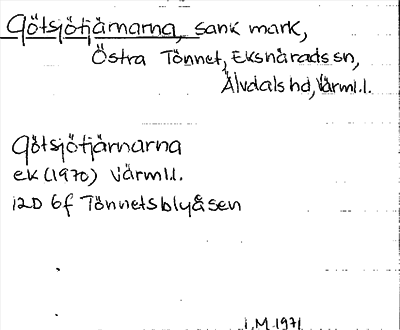 Götsjötjärnarna, sank mark,
Östra Tönnet, Ekshärads sn,
Älvdals hd, Värml.l.
Götsjötjärnarna
ek (1970) Värml.l.
12D 6f Tönnetsblyåsen
I.M. 1971